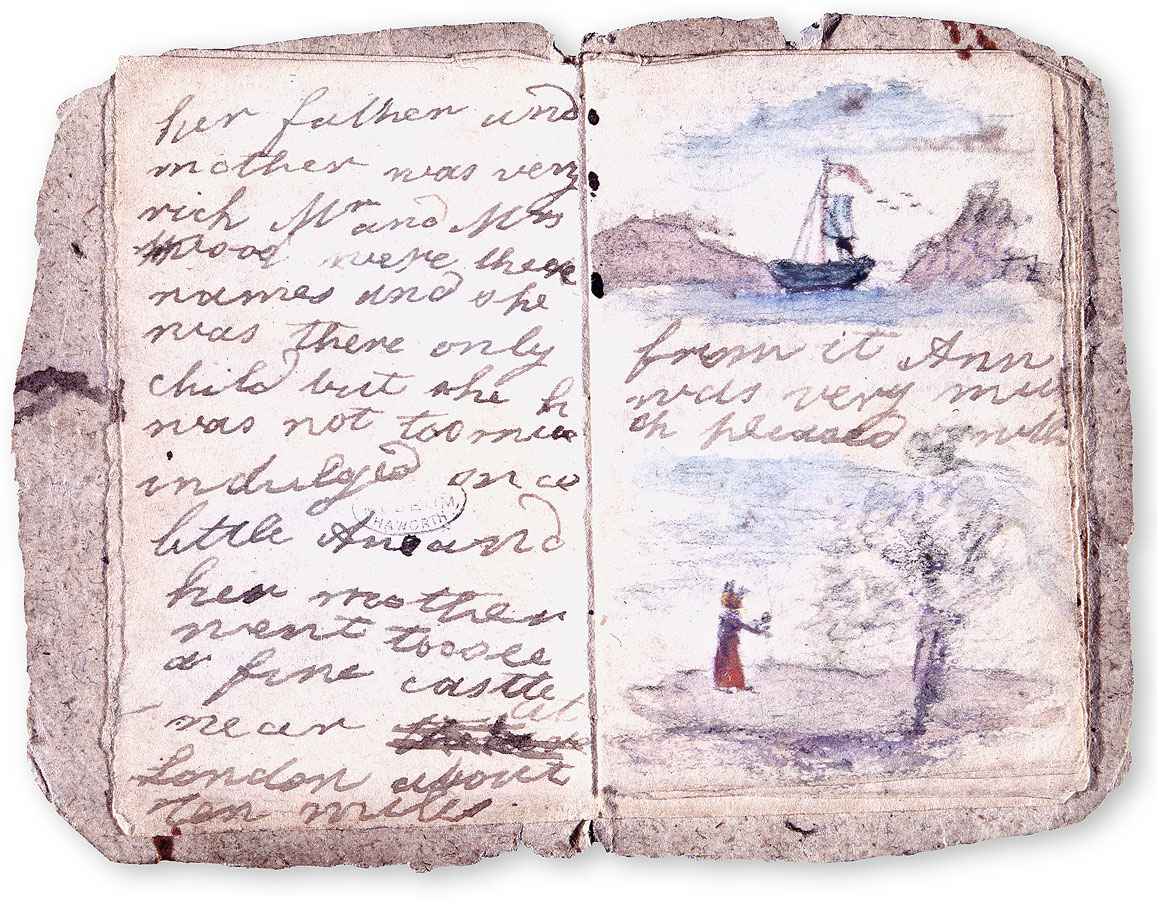 her father and
mother was very
rich Mr and Mrs
Wood were there
names and she
was there only
child but she
was not too muc
indulged once
little Ann and
her mother
went too see
a fine castle
near
London about
ten miles
MUSEUM
HAWORTH
from it Ann
was very mu
ch pleased with